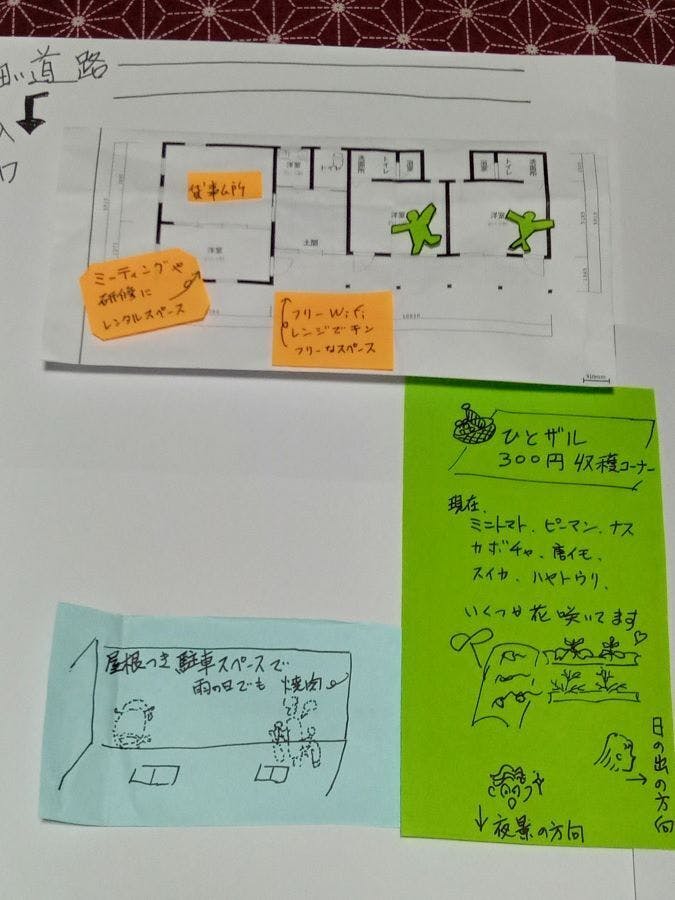 細い道路
入
口
洋室
トイレ
洗面所
浴室
トイレ
浴室
トイレ
洗面所
貸事ム所
洋室
洋室
洋室
土間
ミーティングや
研修に
レンタルスペース
フリー Wifi
レンジでチン
フリーなスペース
ひとザル
300円 収穫コーナー
現在、
ミニトマト、ピーマン、ナス
カボチャ、唐イモ、
スイカ、ハヤトウリ、
いくつか花咲いてます♡
屋根つき駐車スペースで
雨の日でも 焼肉
日の出の方向
→
↓夜景の方向